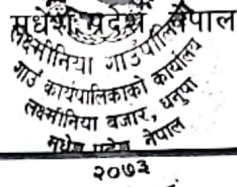 मधेश प्रदेश नेपाल
लक्ष्मीनिया गाउँपालिका
गाउँ कार्यपालिकाको कार्यालय
लक्ष्मीनिया बजार, धनुषा
मधेश प्रदेश नेपाल
२०७३